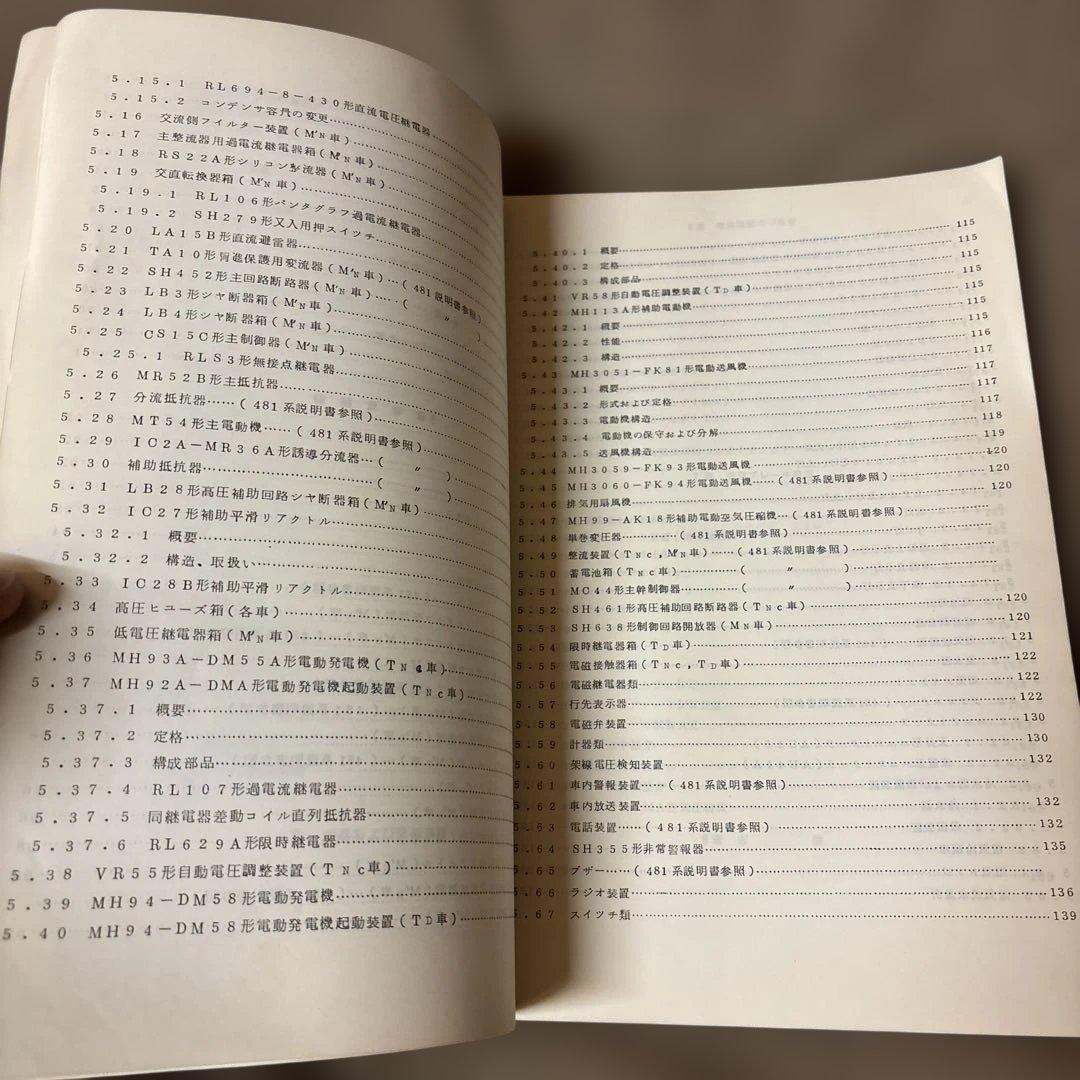 5.15.1 RL694-8-430形直流電圧継電器
5.15.2 コンデンサ容量の変更
5.16 交流側フイルター装置(M'N車)
5.17 主整流器用過電流継電器箱(M'N車)
5.18 RS22A形シリコン整流器(M'N車)
5.19 交直転換器箱(M'N車)
5.19.1 RL106形パンタグラフ過電流継電器
5.19.2 SH279形又入用押スイツチ
5.20 LA15B形直流避雷器
5.21 TA10形昇進保護用変流器(M'N車)
5.22 SH452形主回路断路器(M'N車)……(481説明書参照)
5.23 LB3形シヤ断器箱(M'N車)……( 〃 )
5.24 LB4形シヤ断器箱(M'N車)
5.25 CS15C形主制御器(M'N車)
5.25.1 RLS3形無接点継電器
5.26 MR52B形主抵抗器
5.27 分流抵抗器……(481系説明書参照)
5.28 MT54形主電動機……(481系説明書参照)
5.29 IC2A-MR36A形誘導分流器…( 〃 )
5.30 補助抵抗器……( 〃 )
5.31 LB28形高圧補助回路シヤ断器箱(M'N車)
5.32 IC27形補助平滑リアクトル
5.32.1 概要
5.32.2 構造、取扱い
5.33 IC28B形補助平滑リアクトル
5.34 高圧ヒユーズ箱(各車)
5.35 低電圧継電器箱(M'N車)
5.36 MH93A-DM55A形電動発電機(TNC車)
5.37 MH92A-DMA形電動発電機起動装置(TNC車)
5.37.1 概要
5.37.2 定格
5.37.3 構成部品
5.37.4 RL107形過電流継電器
5.37.5 同継電器差動コイル直列抵抗器
5.37.6 RL629A形限時継電器
5.38 VR55形自動電圧調整装置(TNC車)
5.39 MH94-DM58形電動発電機
5.40 MH94-DM58形電動発電機起動装置(TD車)
5.40.1 概要……115
5.40.2 定格……115
5.40.3 構成部品……115
5.41 VR58形自動電圧調整装置(TD車)……115
5.42 MH113A形補助電動機……115
5.42.1 概要……115
5.42.2 性能……115
5.42.3 構造……116
5.43 MH3051-FK81形電動送風機……117
5.43.1 概要……117
5.43.2 形式および定格……117
5.43.3 電動機構造……117
5.43.4 電動機の保守および分解……118
5.43.5 送風機構造……119
5.44 MH3059-FK93形電動送風機……120
5.45 MH3060-FK94形電動送風機……(481系説明書参照)……120
5.46 排気用扇風機……120
5.47 MH99-AK18形補助電動空気圧縮機…(481系説明書参照)
5.48 単巻変圧器……(481系説明書参照)
5.49 整流装置(TNC,M'N車)……(481系説明書参照)
5.50 蓄電池箱(TNC車)……( 〃 )
5.51 MC44形主幹制御器……( 〃 )
5.52 SH461形高圧補助回路断路器(TNC車)……120
5.53 SH638形制御回路開放器(MN車)……120
5.54 限時継電器箱(TD車)……121
5.55 電磁接触器箱(TNC,TD車)……122
5.56 電磁継電器類……122
5.57 行先表示器……122
5.58 電磁弁装置……130
5.59 計器類……130
5.60 架線電圧検知装置
5.61 車内警報装置……(481系説明書参照)
5.62 車内放送装置……132
5.63 電話装置……(481系説明書参照)……132
5.64 SH355形非常警報器……135
5.65 ブザー……(481系説明書参照)
5.66 ラジオ装置……136
5.67 スイツチ類……139